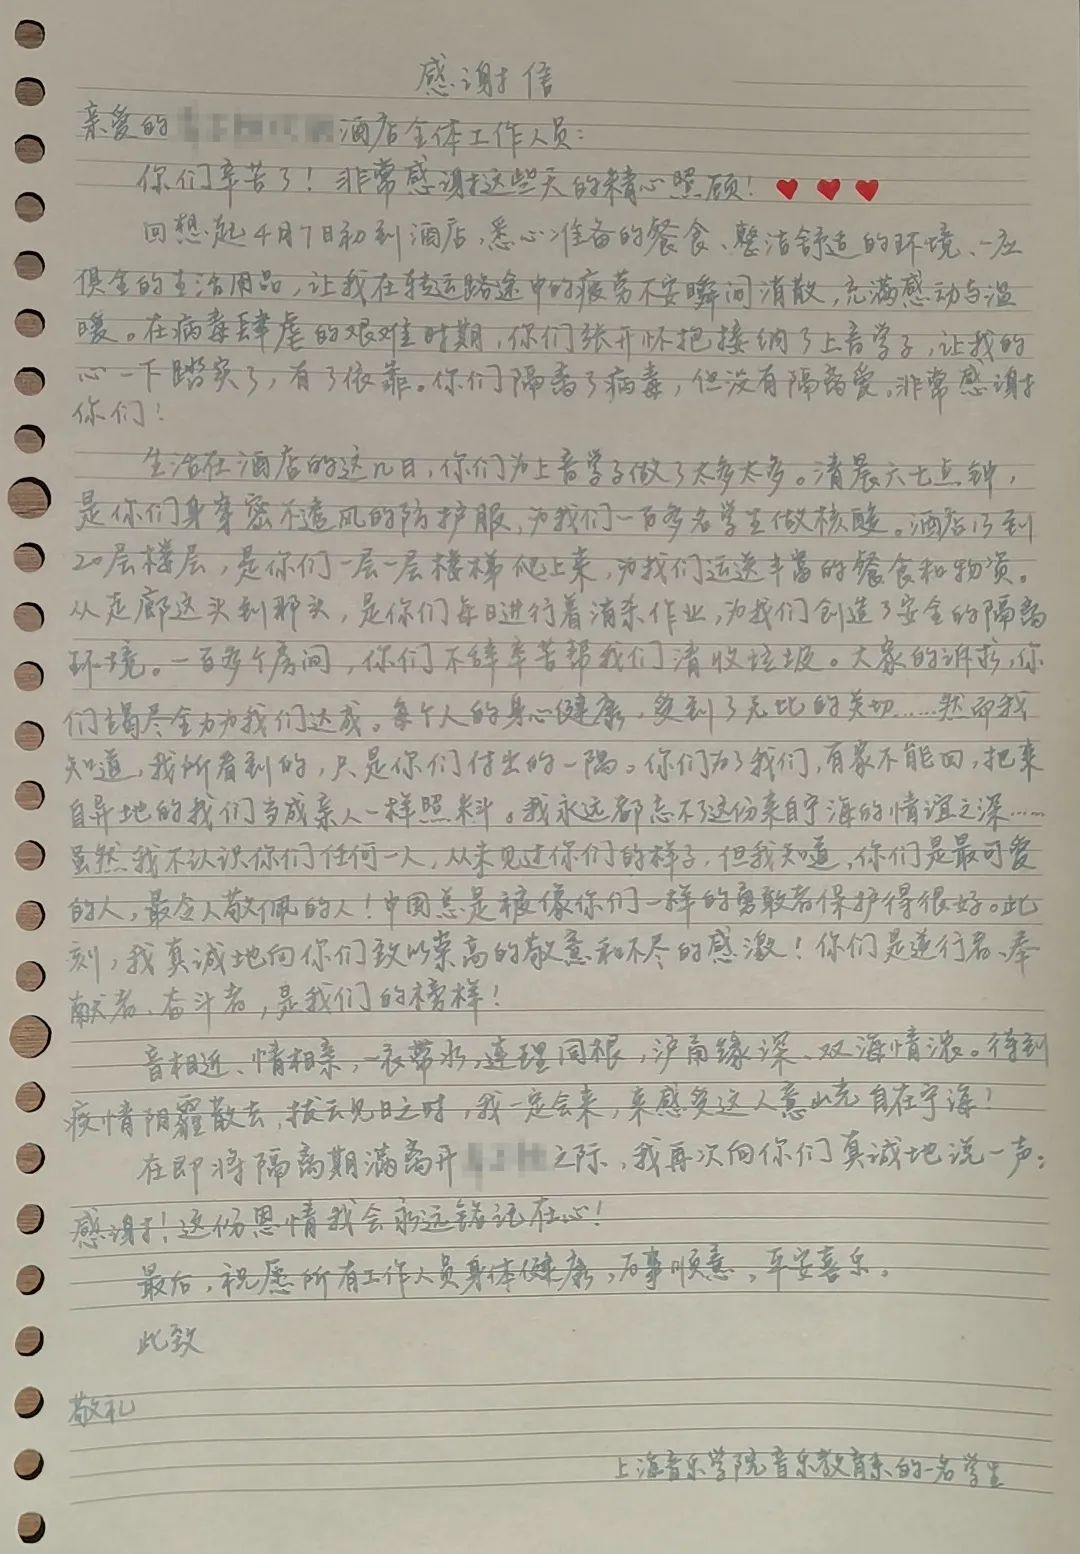 感谢信
亲爱的 酒店全体工作人员：
你们辛苦了！非常感谢这些天的精心照顾！
回想起4月7日初到酒店，悉心准备的餐食、整洁舒适的环境、一应
俱全的生活用品，让我在转运路途中的疲劳不安瞬间消散，充满感动与温
暖。在病毒肆虐的艰难时期，你们张开怀抱接纳了上音学子，让我的
心一下踏实了，有了依靠。你们隔离了病毒，但没有隔离爱。非常感谢
你们！
生活在酒店的这几日，你们为上音学子做了太多太多。清晨六七点钟，
是你们身穿密不透风的防护服，为我们一百多名学生做核酸。酒店13到
20层楼层，是你们一层一层楼梯爬上来，为我们运送丰富的餐食和物资。
从走廊这头到那头，是你们每日进行着消杀作业，为我们创造了安全的隔离
环境。一百多个房间，你们不辞辛苦帮我们清收垃圾。大家的诉求，你
们竭尽全力为我们达成。每个人的身心健康，受到了无比的关切……然而我
知道，我所看到的，只是你们付出的一隅。你们为了我们，有家不能回，把来
自异地的我们当成亲人一样照料。我永远都忘不了这份来自宁海的情谊之深……
虽然我不认识你们任何一人，从未见过你们的样子，但我知道，你们是最可爱
的人，最令人敬佩的人！中国总是被像你们一样的勇敢者保护得很好。此
刻，我真诚地向你们致以崇高的敬意和不尽的感激！你们是逆行者、奉
献者、奋斗者，是我们的榜样！
音相近、情相亲，一衣带水，连理同根，沪甬缘深、双海情浓。待到
疫情阴霾散去，拔云见日之时，我一定会来，来感受这人意山光自在宁海！
在即将隔离期满离开 之际，我再次向你们真诚地说一声：
感谢！这份恩情我会永远铭记在心！
最后，祝愿所有工作人员身体健康，万事顺意，平安喜乐。
此致
敬礼
上海音乐学院音乐教育系的一名学生